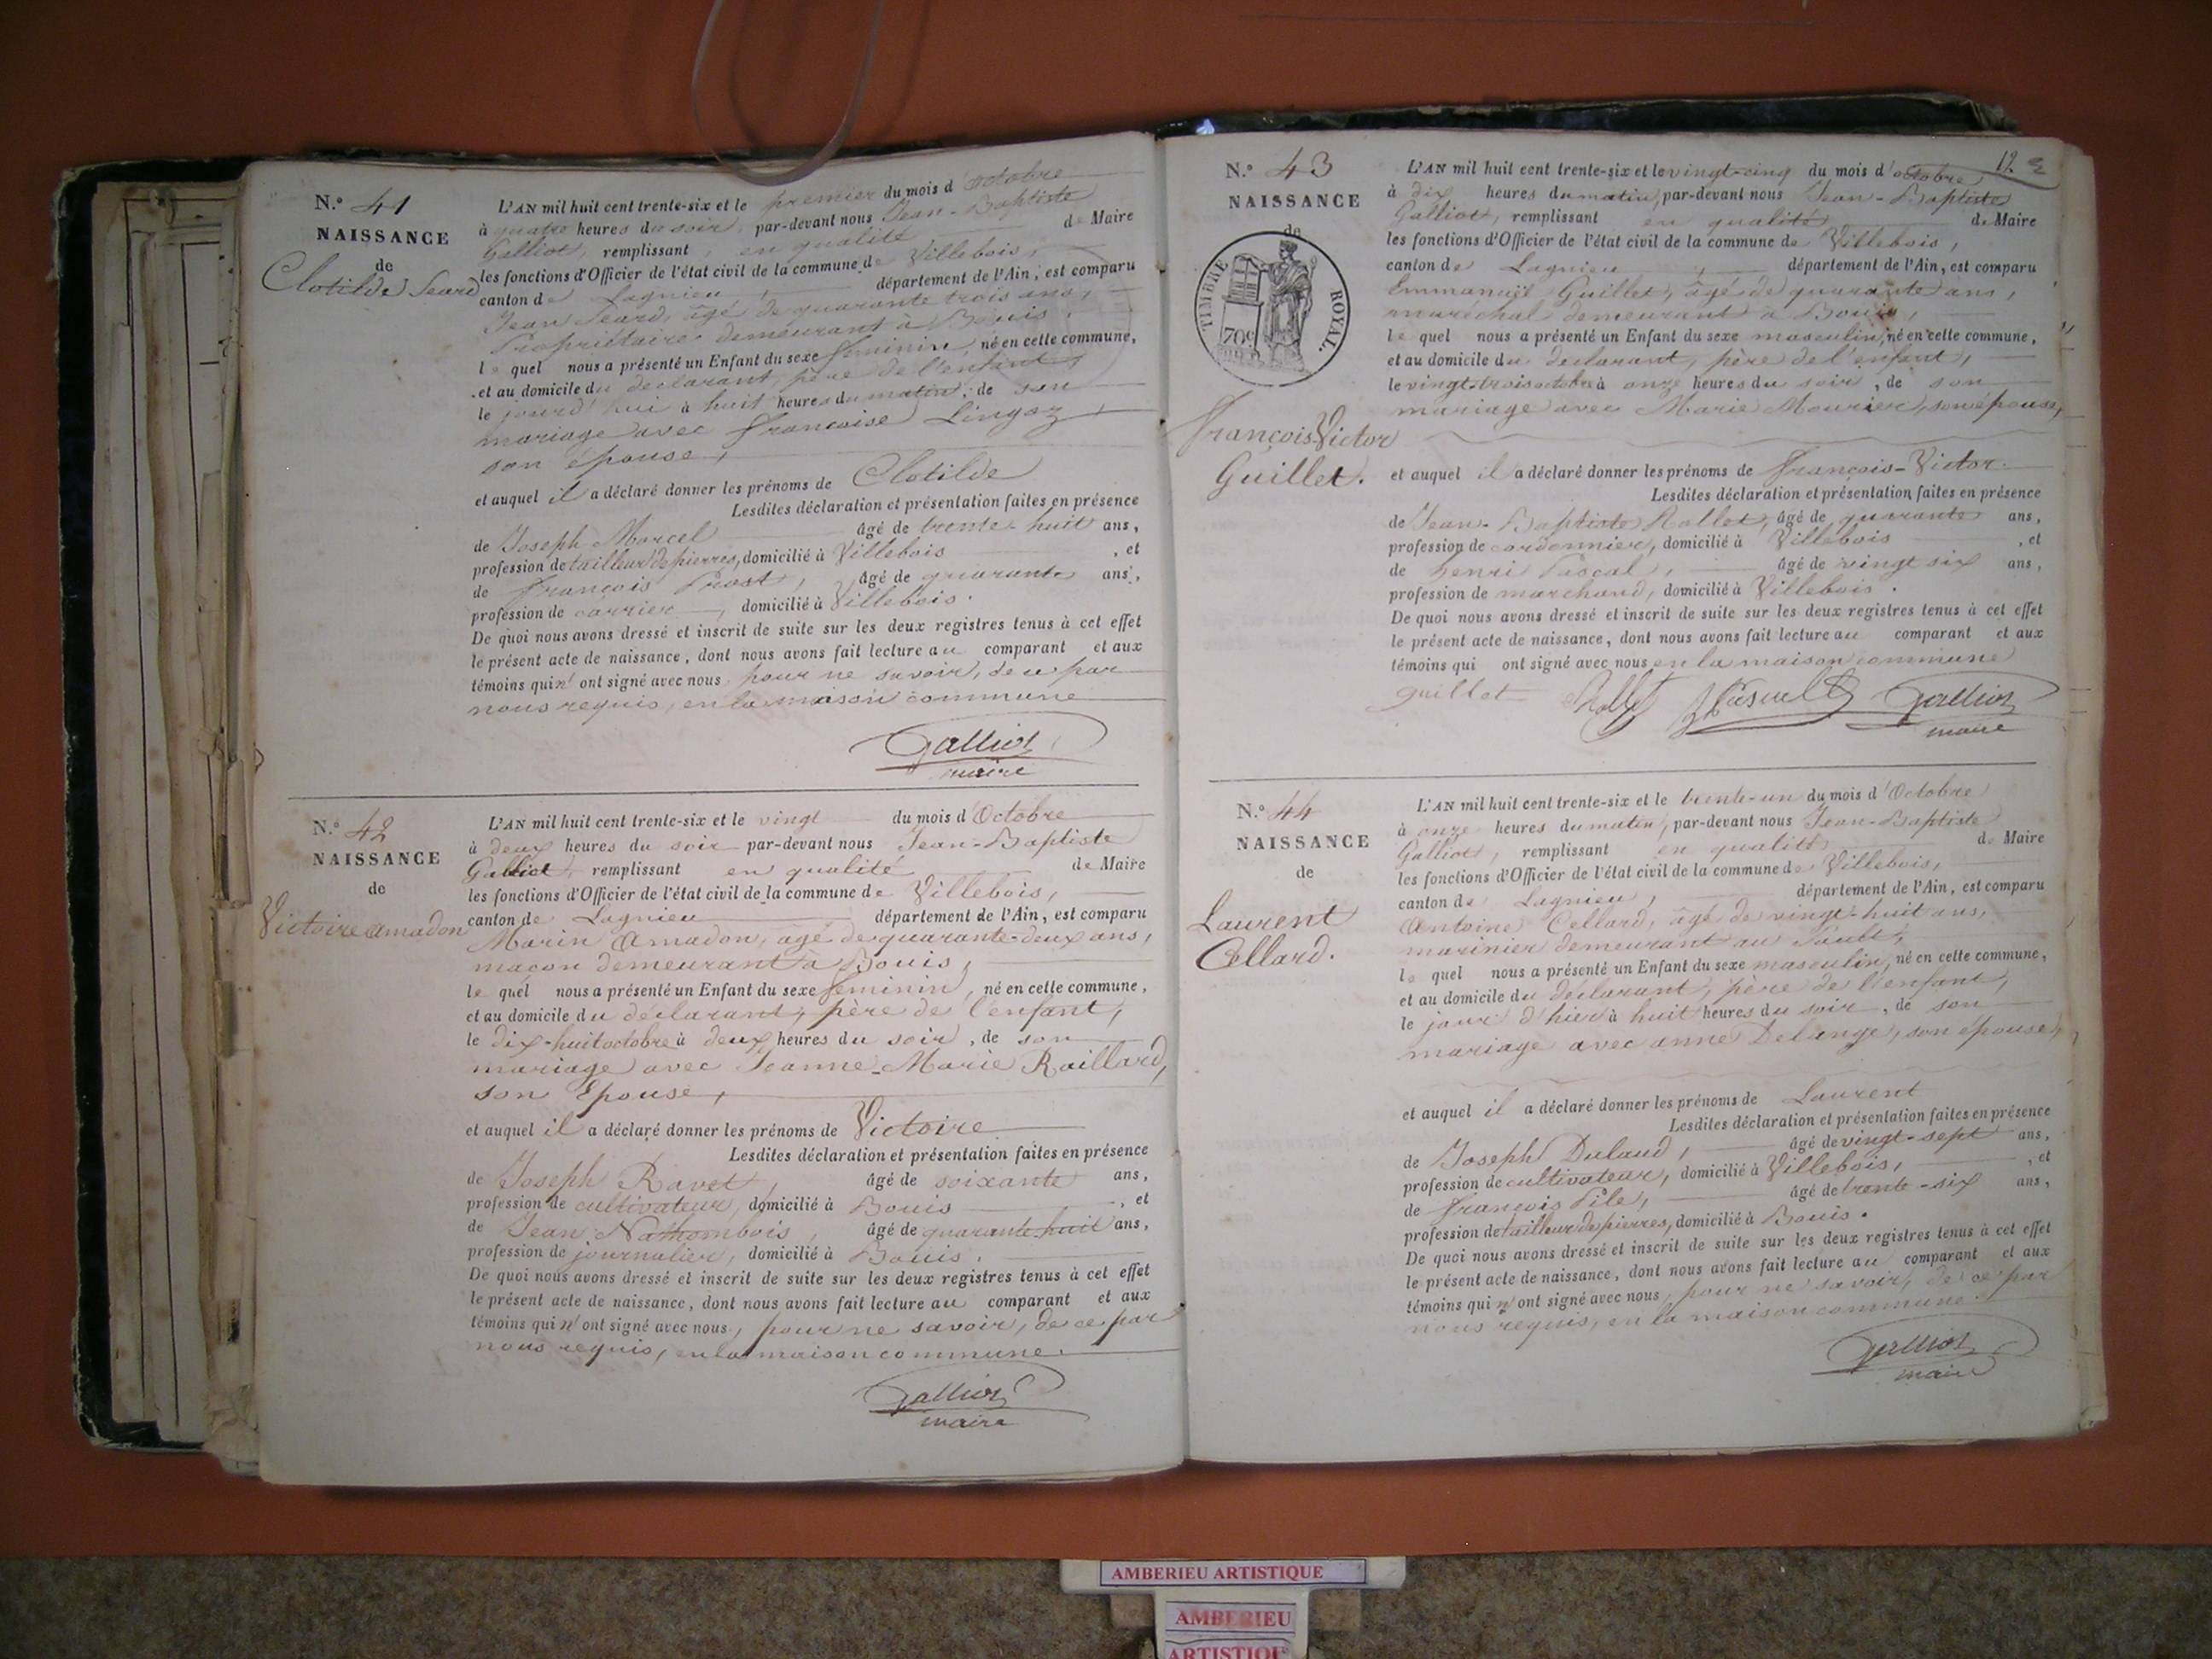 N.º 41
NAISSANCE
de
Clotilde Seard
L'AN mil huit cent trente-six et le premier du mois d'octobre
à quatre heures du soir, par-devant nous Jean-Baptiste
Galliot, remplissant en qualité de Maire
les fonctions d'Officier de l'état civil de la commune de Villebois,
canton de Lagnieu, département de l'Ain, est comparu
Jean Seard, âgé de quarante trois ans,
Propriétaire demeurant à Bouis,
le quel nous a présenté un Enfant du sexe féminin, né en cette commune,
et au domicile du déclarant, père de l'enfant,
le jourd'hui à huit heures du matin, de son
mariage avec Françoise Lingoz,
son épouse,
et auquel il a déclaré donner les prénoms de Clotilde
Lesdites déclaration et présentation faites en présence
de Joseph Marcel âgé de trente-huit ans,
profession de tailleur de pierres, domicilié à Villebois, et
de François Prost, âgé de quarante ans,
profession de carrier, domicilié à Villebois.
De quoi nous avons dressé et inscrit de suite sur les deux registres tenus à cet effet
le présent acte de naissance, dont nous avons fait lecture au comparant et aux
témoins qui n'ont signé avec nous, pour ne savoir, de ce par
nous requis, en la maison commune
Galliot
maire
N.º 42
NAISSANCE
de
Victoire Amadon
L'AN mil huit cent trente-six et le vingt du mois d'Octobre
à deux heures du soir par-devant nous Jean-Baptiste
Galliot, remplissant en qualité de Maire
les fonctions d'Officier de l'état civil de la commune de Villebois,
canton de Lagnieu département de l'Ain, est comparu
Marin Amadon, âgé de quarante-deux ans,
maçon demeurant à Bouis,
le quel nous a présenté un Enfant du sexe féminin, né en cette commune,
et au domicile du déclarant, père de l'enfant,
le dix-huit octobre à deux heures du soir, de son
mariage avec Jeanne-Marie Raillard,
son Epouse,
et auquel il a déclaré donner les prénoms de Victoire
Lesdites déclaration et présentation faites en présence
de Joseph Ravet, âgé de soixante ans,
profession de cultivateur, domicilié à Bouis, et
de Jean Nathombois, âgé de quarante-huit ans,
profession de journalier, domicilié à Bouis.
De quoi nous avons dressé et inscrit de suite sur les deux registres tenus à cet effet
le présent acte de naissance, dont nous avons fait lecture au comparant et aux
témoins qui n'ont signé avec nous, pour ne savoir, de ce par
nous requis, en la maison commune.
Galliot
maire
12
N.º 43
NAISSANCE
de
TIMBRE ROYAL.
70c
François-Victor
Guillet.
L'AN mil huit cent trente-six et le vingt-cinq du mois d'octobre
à dix heures du matin, par-devant nous Jean-Baptiste
Galliot, remplissant en qualité de Maire
les fonctions d'Officier de l'état civil de la commune de Villebois,
canton de Lagnieu, département de l'Ain, est comparu
Emmanuël Guillet, âgé de quarante ans,
maréchal demeurant à Bouis,
le quel nous a présenté un Enfant du sexe masculin, né en cette commune,
et au domicile du déclarant, père de l'enfant,
le vingt-trois octobre à onze heures du soir, de son
mariage avec Marie Mourier, son épouse,
et auquel il a déclaré donner les prénoms de François-Victor.
Lesdites déclaration et présentation faites en présence
de Jean-Baptiste Rollet, âgé de quarante ans,
profession de cordonnier, domicilié à Villebois, et
de henri Pascal, âgé de vingt six ans,
profession de marchand, domicilié à Villebois.
De quoi nous avons dressé et inscrit de suite sur les deux registres tenus à cet effet
le présent acte de naissance, dont nous avons fait lecture au comparant et aux
témoins qui ont signé avec nous en la maison commune
guillet Rollet HPascal Galliot
maire
N.º 44
NAISSANCE
de
Laurent
Cellard.
L'AN mil huit cent trente-six et le trente-un du mois d'Octobre
à onze heures du matin, par-devant nous Jean-Baptiste
Galliot, remplissant en qualité de Maire
les fonctions d'Officier de l'état civil de la commune de Villebois,
canton de Lagnieu, département de l'Ain, est comparu
Antoine Cellard, âgé de vingt-huit ans,
marinier demeurant au Sault,
le quel nous a présenté un Enfant du sexe masculin, né en cette commune,
et au domicile du déclarant, père de l'enfant,
le jour d'hier à huit heures du soir, de son
mariage avec anne Delange, son épouse,
et auquel il a déclaré donner les prénoms de Laurent
Lesdites déclaration et présentation faites en présence
de Joseph Dulaud, âgé de vingt-sept ans,
profession de cultivateur, domicilié à Villebois, et
de François Pile, âgé de trente-six ans,
profession de tailleur de pierres, domicilié à Bouis.
De quoi nous avons dressé et inscrit de suite sur les deux registres tenus à cet effet
le présent acte de naissance, dont nous avons fait lecture au comparant et aux
témoins qui n'ont signé avec nous, pour ne savoir, de ce par
nous requis, en la maison commune
Galliot
maire
AMBERIEU ARTISTIQUE
AMBERIEU
ARTISTIQUE